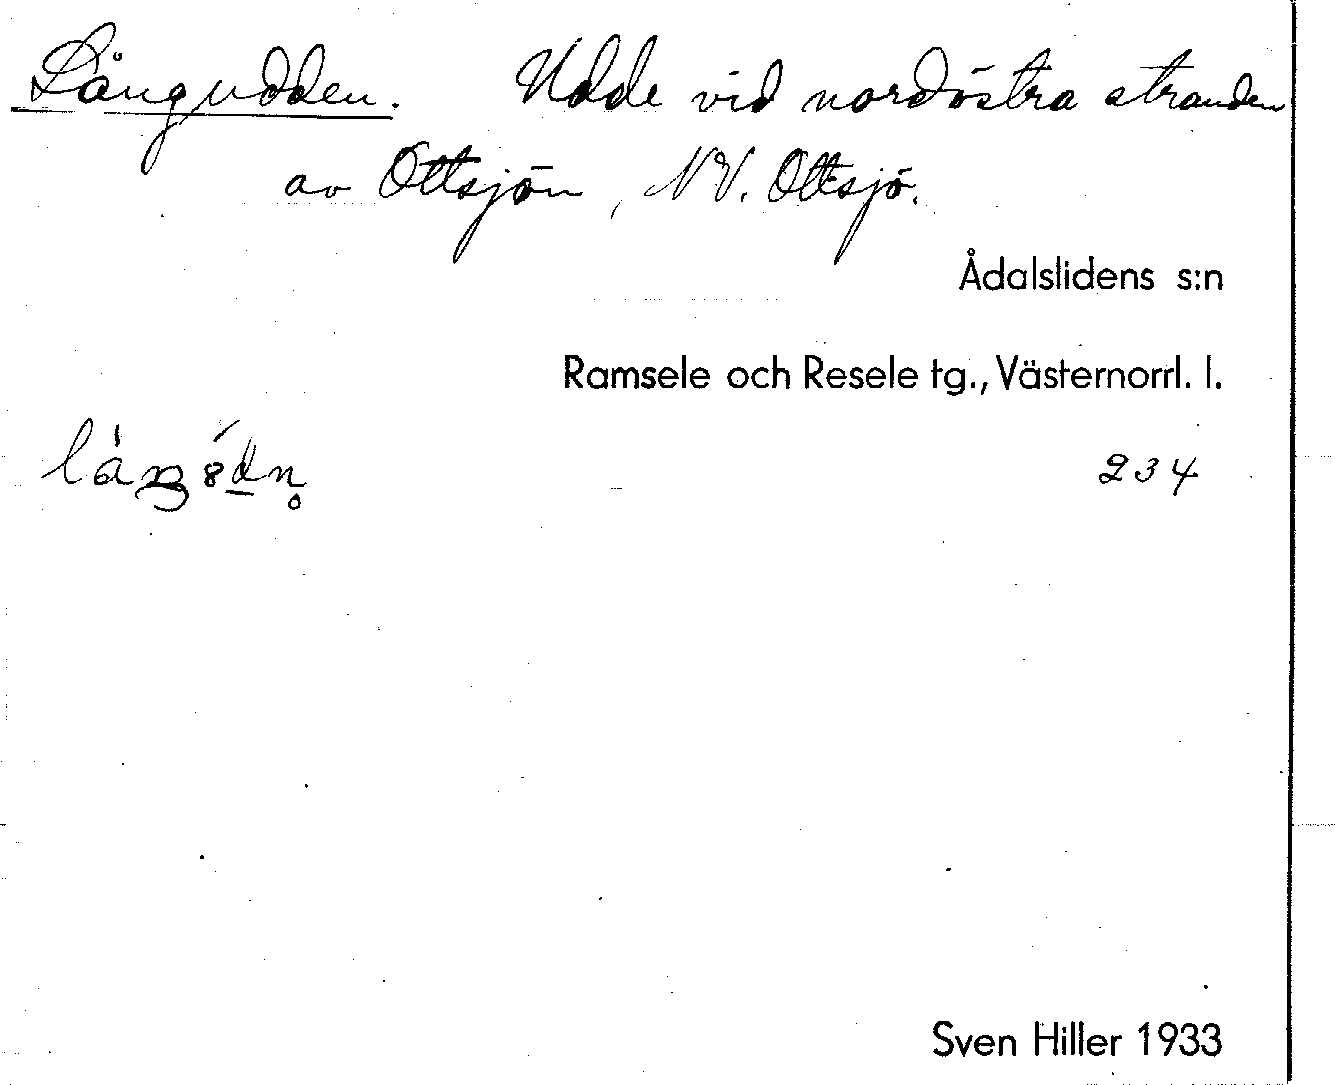 Långudden. Udde vid nordöstra stranden
av Ottsjön, NV. Ottsjö.
Ådalslidens s:n
Ramsele och Resele tg., Västernorrl. l.
234
Sven Hiller 1933